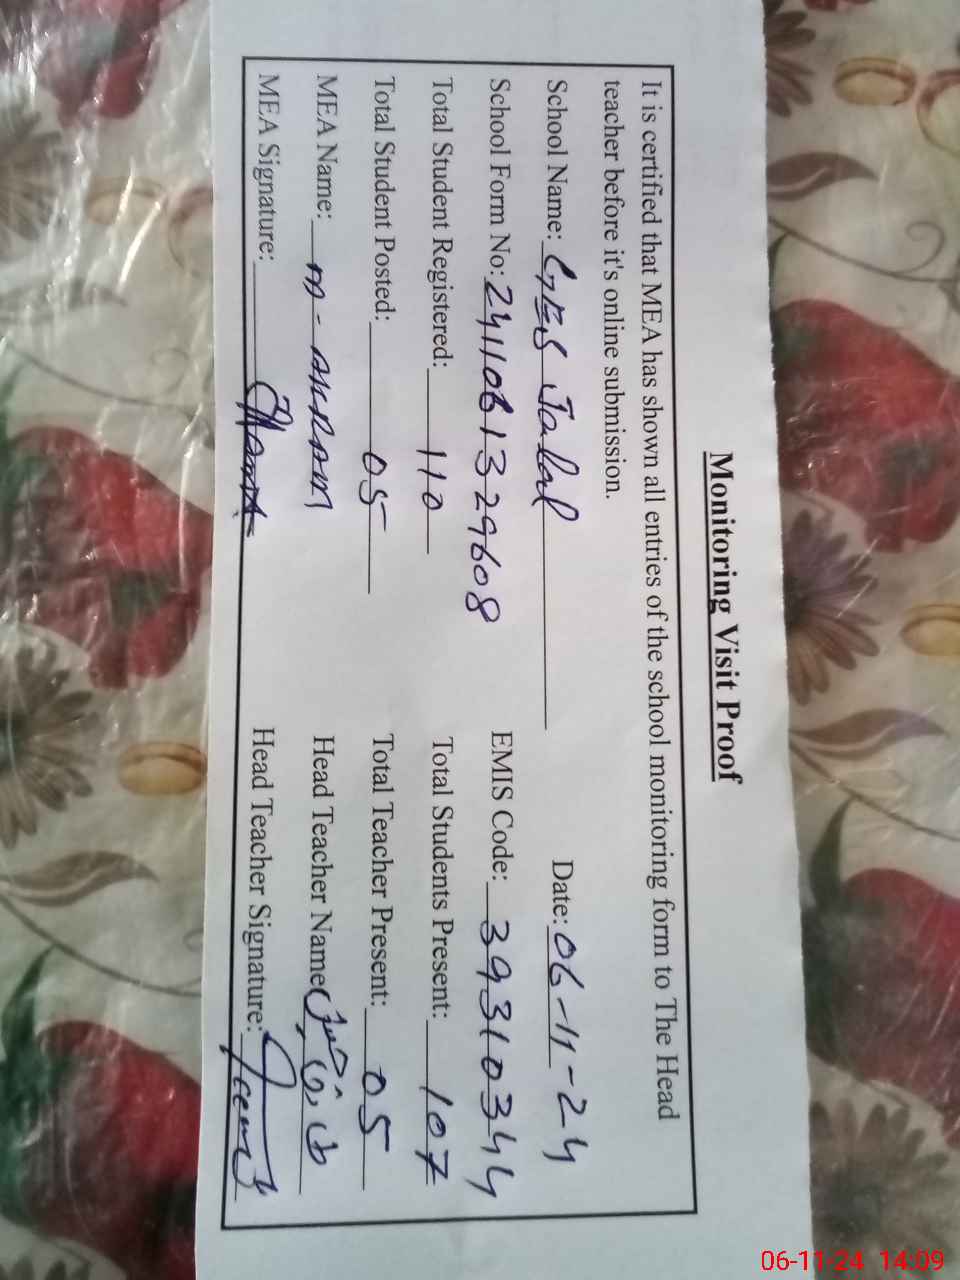 Monitoring Visit Proof
It is certified that MEA has shown all entries of the school monitoring form to The Head
teacher before it's online submission.
School Name: GES Jalal Date: 06-11-24
School Form No: 24110613 29608 EMIS Code: 39310344
Total Student Registered: 110 Total Students Present: 107
Total Student Posted: 05 Total Teacher Present: 05
MEA Name: M-AKRAM Head Teacher Name
MEA Signature: Head Teacher Signature:
06-11-24 14:09